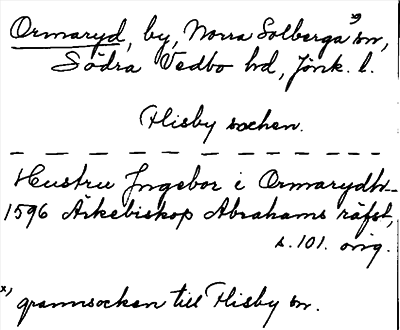 Ormaryd, by, Norra Solberga x) sn,
Södra Vedbo hd, Jönk. l.
Flisby socken.
Hustru Ingebor i Ormarydh -
1596 Ärkebiskop Abrahams räfst,
s. 101. orig.
x) grannsocken till Flisby sn.